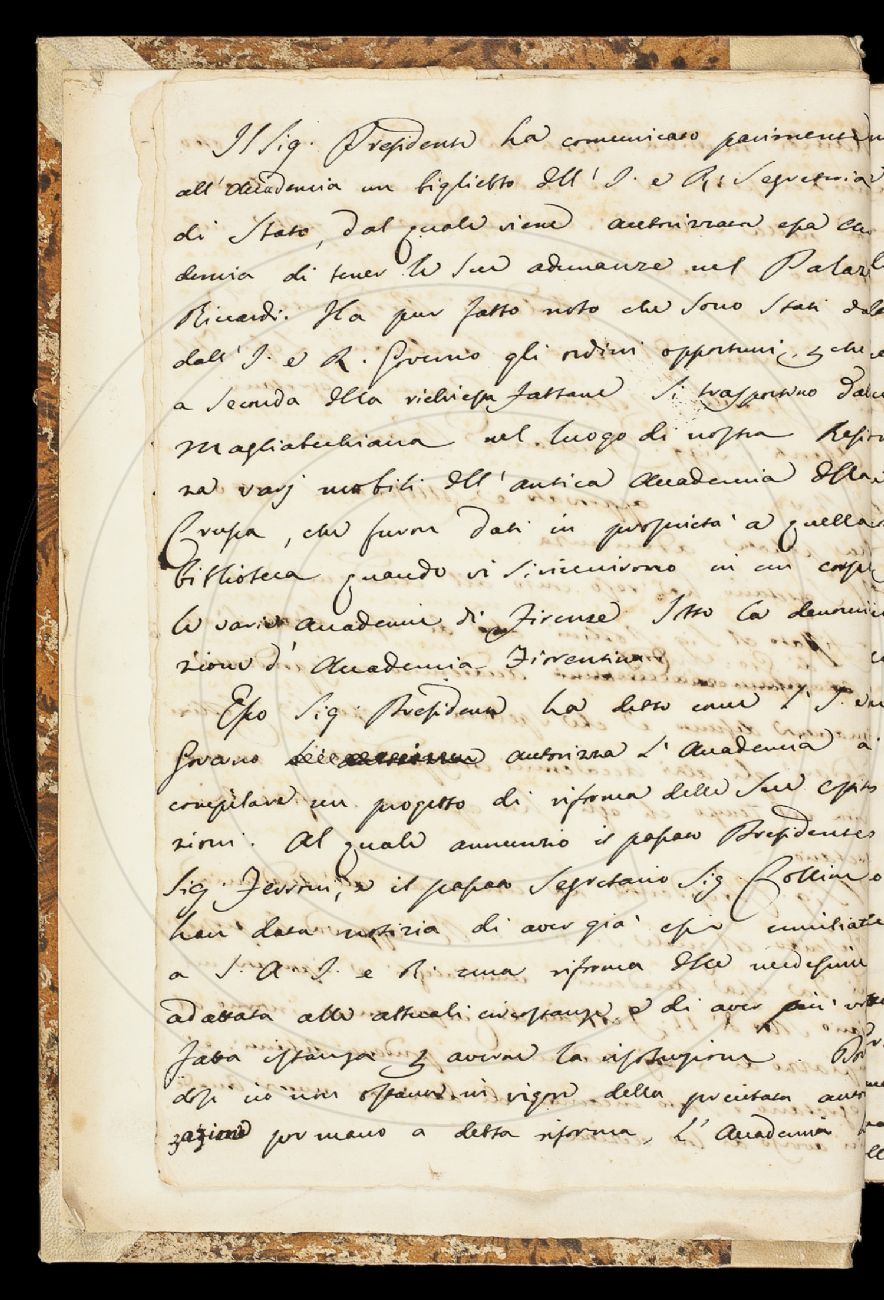 Il Sig. Presidente ha comunicato parimente
all'Accademia un biglietto dell'I. e R. Segreteria
di Stato, dal quale viene autorizzata essa Acca
demia di tener le sue adunanze nel Palaz
Riccardi. Ha pur fatto noto che sono stati
dall'I. e R. Governo gli ordini opportuni, che
a seconda della richiesta fattane si trasportino dalla
Magliabechiana nel luogo di nostra Residen
za varj mobili dell'antica Accademia della
Crusca, che furon dati in proprietà a quella
biblioteca quando vi si riunirono in un corpo
le varie Accademie di Firenze sotto la denomina
zione d'Accademia Fiorentina.
Esso Sig. Presidente ha detto come l'I. e R.
Governo autorizza l'Accademia a
compilare un progetto di riforma delle sue Costitu
zioni. Al quale annunzio il passato Presidente
Sig. Ferroni, e il passato Segretario Sig. Collini
han data notizia di aver già essi umiliata
a S. A. I. e R. una riforma delle medesime
adattata alle attuali circostanze, e di aver più volte
fatta istanza p averne la risoluzione.
dosi ciò non ostante in vigore della precitata autoriz
zazione por mano a detta riforma, l'Accademia